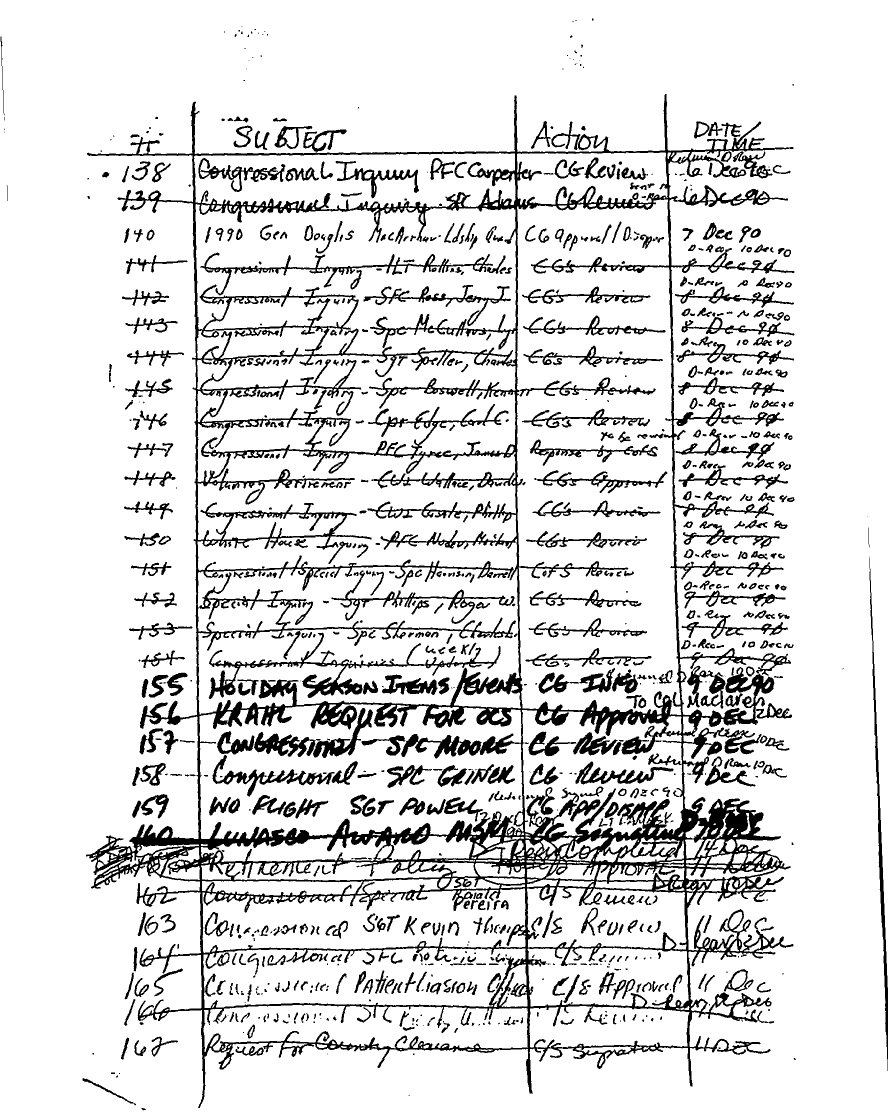 # SUBJECT Action DATE/TIME
138 Congressional Inquiry PFC Carpenter CG Review 6 Dec 90
139 Congressional Inquiry Adams CG Review 6 Dec 90
140 1990 Gen Douglas MacArthur Ldship CG approval/Disappr 7 Dec 90
D-Rear 10 Dec 90
141 Congressional Inquiry - Rollins, Charles CG's Review 8 Dec 90
D-Rear 10 Dec 90
142 Congressional Inquiry - SFC Ross, Jerry J. CG's Review 8 Dec 90
D-Rear 10 Dec 90
143 Congressional Inquiry - Spc CG's Review 8 Dec 90
D-Rear 10 Dec 90
144 Congressional Inquiry - Sgt Speller, Charles CG's Review 8 Dec 90
D-Rear 10 Dec 90
145 Congressional Inquiry - Spc Boswell, CG's Review 8 Dec 90
D-Rear 10 Dec 90
146 Congressional Inquiry - Cpr Edge, Carl C. CG's Review 8 Dec 90
to be reviewed D-Rear - 10 Dec 90
147 Congressional Inquiry - PFC Tyree, James D. Response by CofS 8 Dec 90
D-Rear 10 Dec 90
148 Voluntary Retirement - CW2 Wallace, CG's Approval 8 Dec 90
D-Rear 10 Dec 90
149 Congressional Inquiry - Phillip CG's Review 8 Dec 90
D Rear 10 Dec 90
150 White House Inquiry - PFC CG's Review 8 Dec 90
D-Rear 10 Dec 90
151 Congressional/Special Inquiry - Spc Harrison, Darrell CofS Review 9 Dec 90
D-Rear 10 Dec 90
152 Special Inquiry - Sgt Phillips, Roger W. CG's Review 9 Dec 90
D-Rear 10 Dec 90
153 Special Inquiry - Spc Sherman, CG's Review 9 Dec 90
D-Rear 10 Dec 90
154 Congressional Inquiries (weekly update) CG's Review 9 Dec 90
155 HOLIDAY SEASON ITEMS/EVENTS CG INFO 9 DEC 90
To Col Maclaren 12 Dec
156 KRAHL REQUEST FOR OCS CG Approval 9 DEC
157 CONGRESSIONAL - SPC MOORE CG REVIEW 9 DEC
Returned D Rear 10 Dec
158 Congressional - SPC GRINER CG Review 9 Dec
Returned Signed 10 DEC 90
159 WO FLIGHT SGT POWELL CG APP/DISAPP 9 DEC
160 LUNASCO AWARD MSM CG Signature 10 DEC
Completed 14 Dec
Retirement Policy APPROVAL 11
D Rear
162 Congressional/Special SGT Pereira C/S Review 11 DEC
163 Congressional SGT Kevin C/S Review 11 Dec
D-Rear 12 Dec
164 Congressional
165 Congressional Patient Liasion C/S Approval 11 Dec
166 Congressional
167 Request For Country Clearance C/S Signature 11 DEC